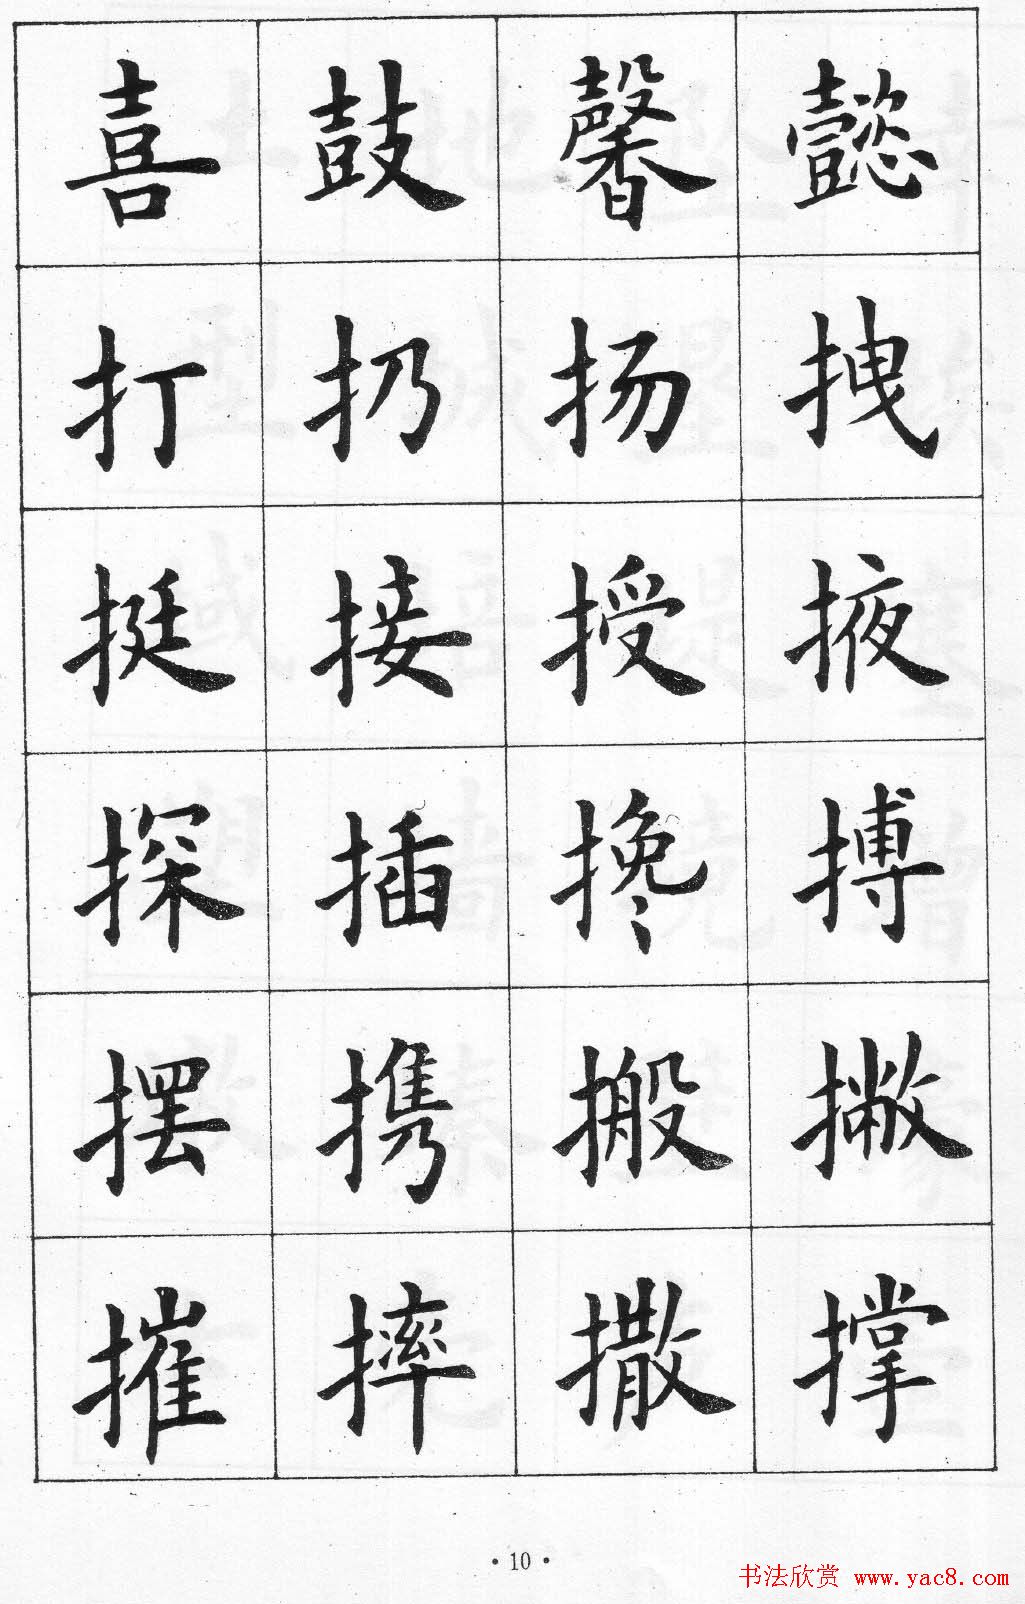 喜鼓馨懿
打扔扬拽
挺接授掖
探插搀搏
摆携搬撇
摧摔撒撑
·10·
书法欣赏 www.yac8.com